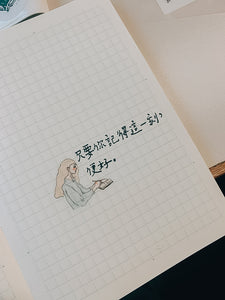 只要你記得這一刻，
便好。